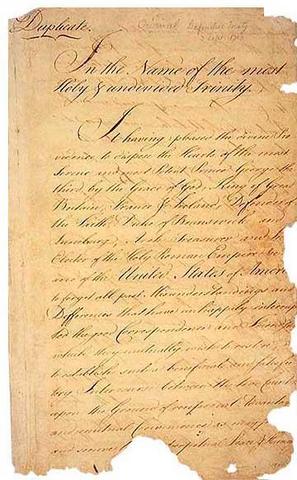 Duplicate.
Original Definitive Treaty
In the Name of the most
Holy & undivided Trinity.
It having pleased the divine Pro
vidence to dispose the Hearts of the most
Serene and most Potent Prince George the
third, by the Grace of God, King of Great
Britain, France & Ireland, Defender of
the Faith, Duke of Brunswick and
Lunebourg, Arch Treasurer and
Elector of the Holy Roman Empire
and of the United States of America
to forget all past Misunderstandings and
Differences that have unhappily interrup
ted the good Correspondence and Friendship
which they mutually wish to restore;
to establish such a beneficial and satisfac
tory Intercourse between the two Countries
upon the Ground of reciprocal Advantages
and mutual Convenience as may
perpetual Peace & Harmony